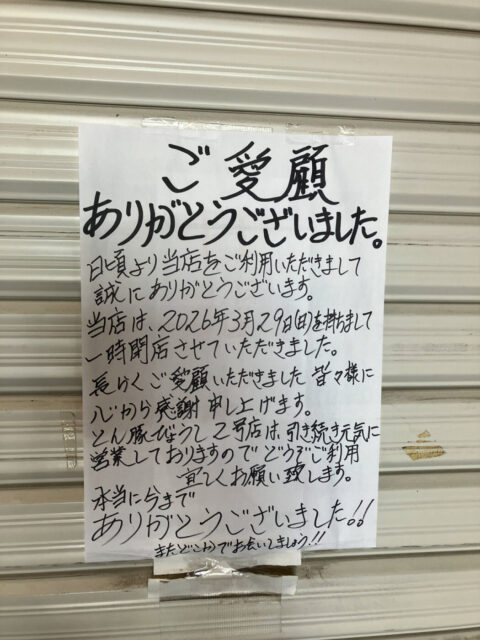 ご愛顧
ありがとうございました。
日頃より当店をご利用いただきまして
誠にありがとうございます。
当店は、2026年3月29日(日)を持ちまして
一時閉店させていただきました。
長らくご愛顧いただきました 皆々様に
心から感謝申し上げます。
とん豚びょうし2号店は、引き続き元気に
営業しておりますのでどうぞご利用
宜しくお願い致します。
本当に今まで
ありがとうございました!!
またどこかでお会いしましょう!!